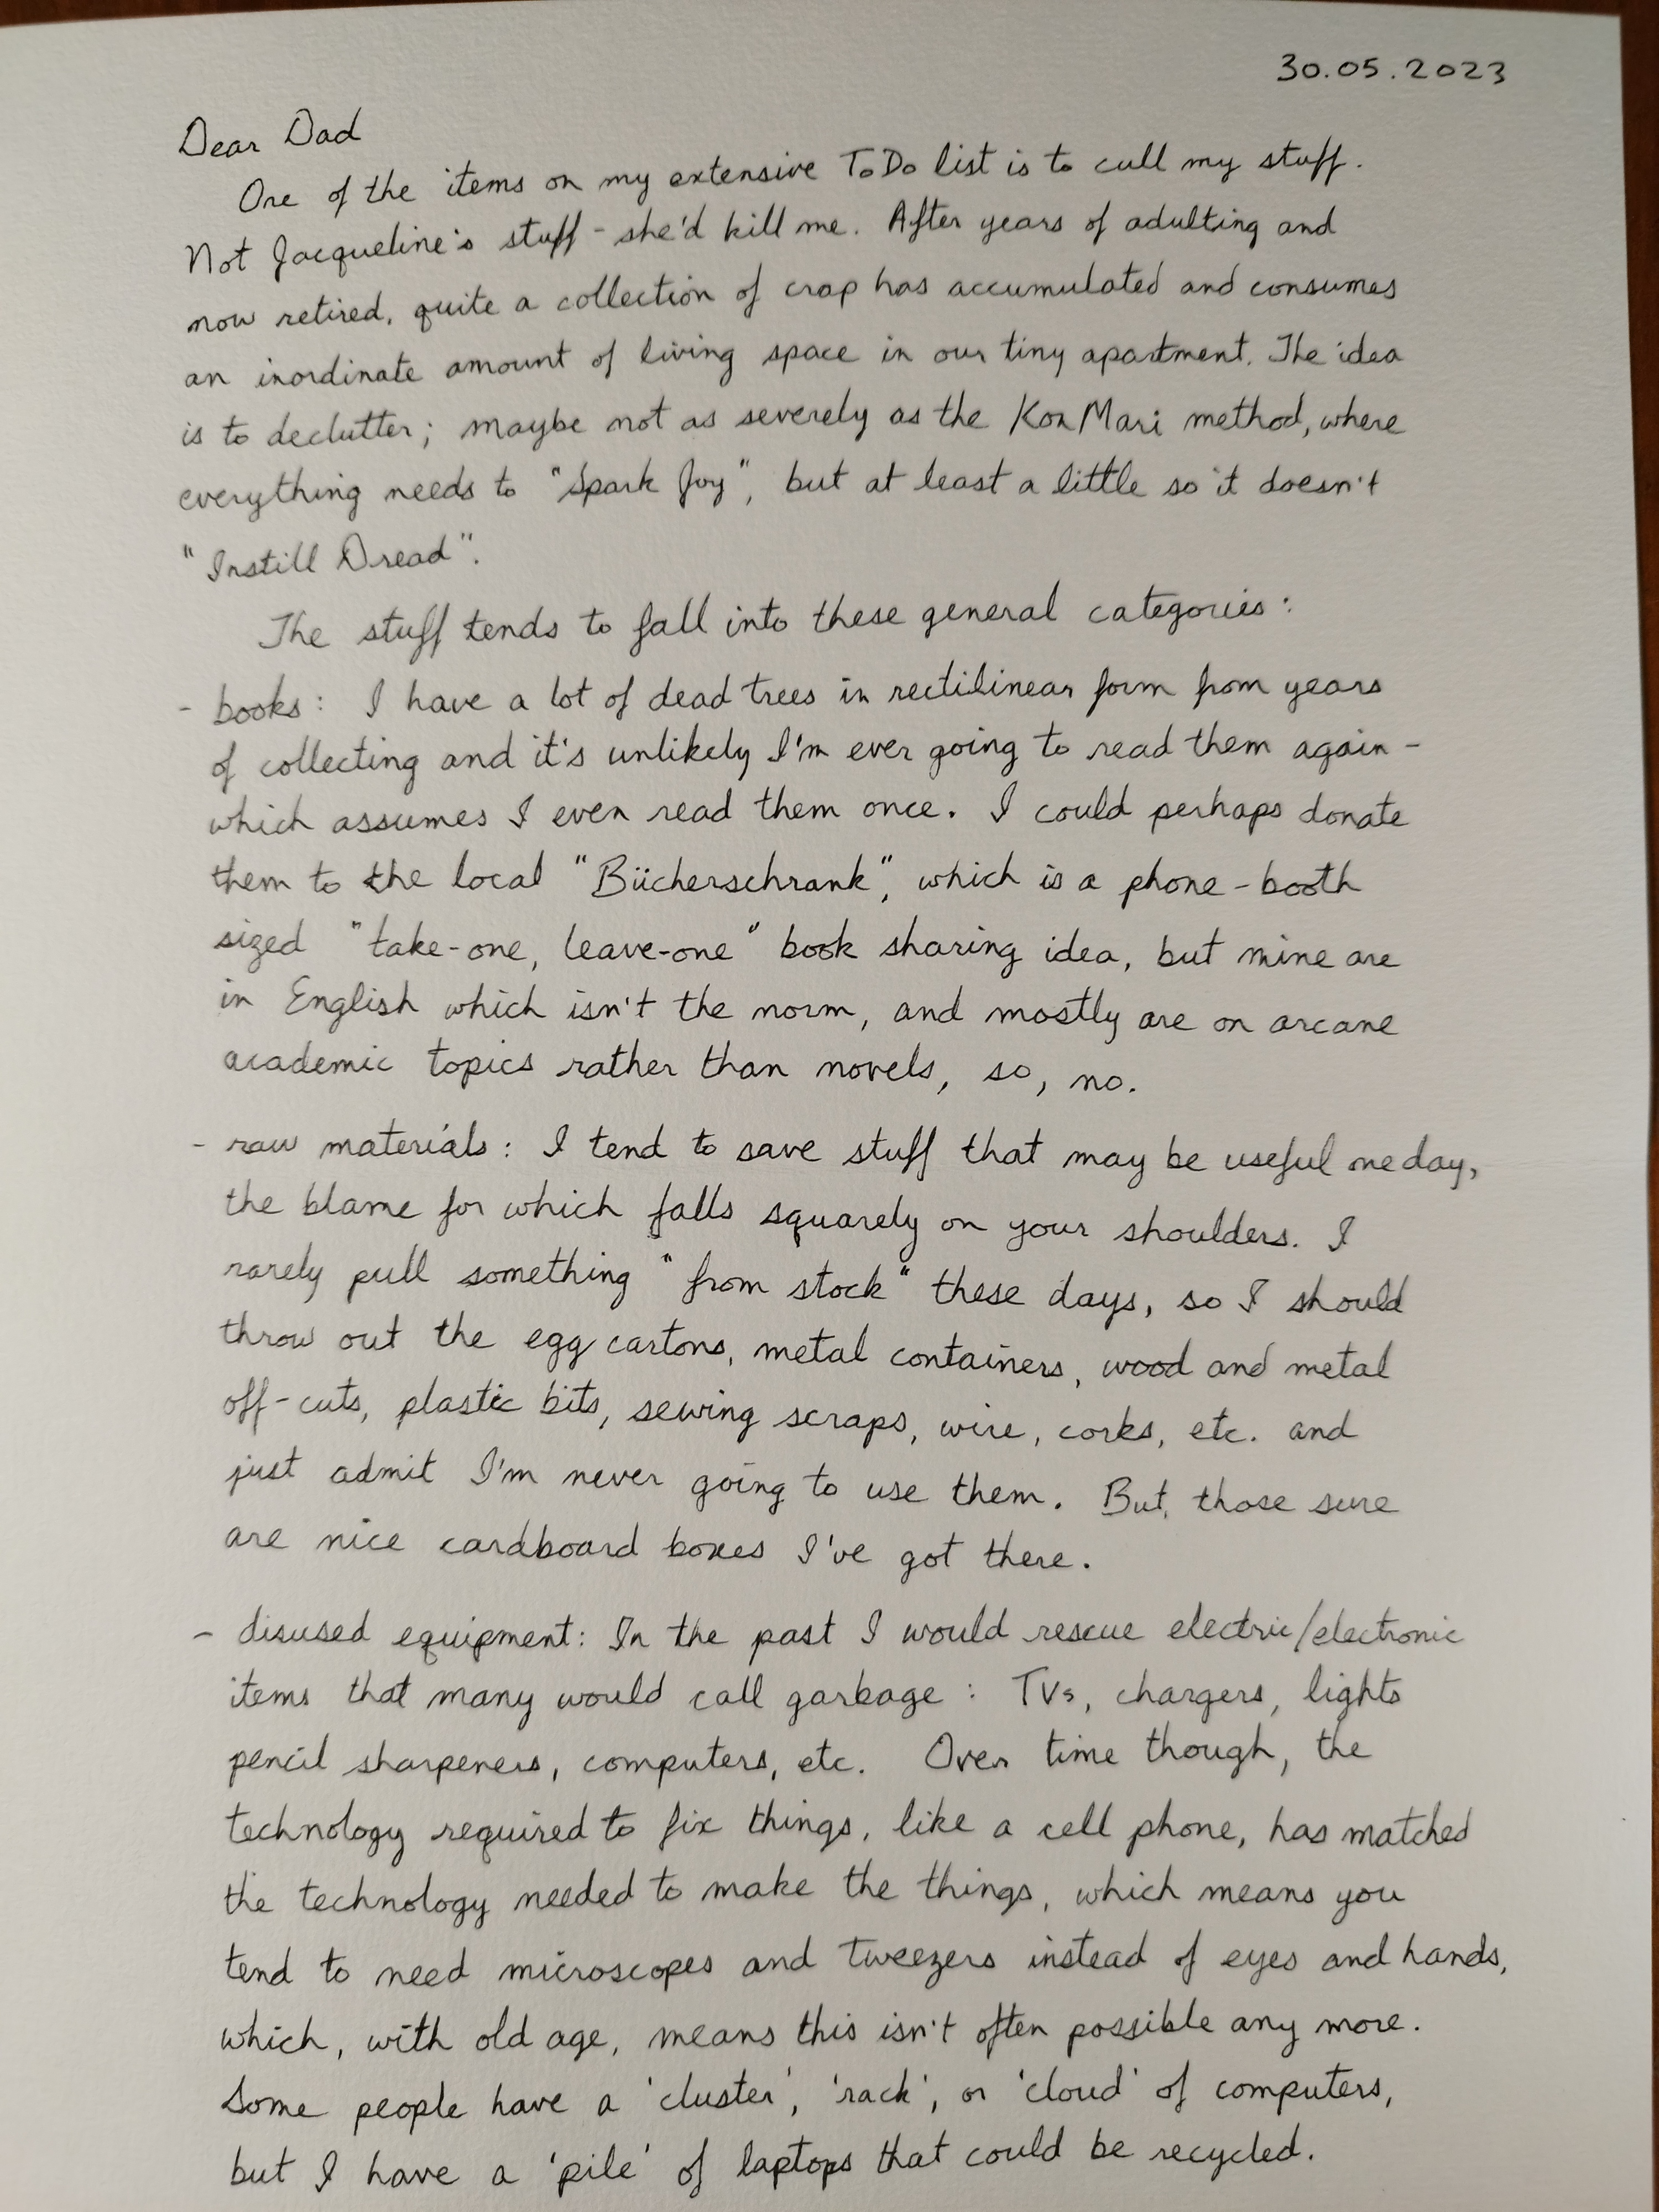 30.05.2023
Dear Dad
One of the items on my extensive ToDo list is to cull my stuff.
Not Jacqueline's stuff - she'd kill me. After years of adulting and
now retired, quite a collection of crap has accumulated and consumes
an inordinate amount of living space in our tiny apartment. The idea
is to declutter; maybe not as severely as the KonMari method, where
everything needs to "Spark Joy", but at least a little so it doesn't
"Instill Dread".
The stuff tends to fall into these general categories:
- books: I have a lot of dead trees in rectilinear form from years
of collecting and it's unlikely I'm ever going to read them again -
which assumes I even read them once. I could perhaps donate
them to the local "Bücherschrank", which is a phone-booth
sized "take-one, leave-one" book sharing idea, but mine are
in English which isn't the norm, and mostly are on arcane
academic topics rather than novels, so, no.
- raw materials: I tend to save stuff that may be useful one day,
the blame for which falls squarely on your shoulders. I
rarely pull something "from stock" these days, so I should
throw out the egg cartons, metal containers, wood and metal
off-cuts, plastic bits, sewing scraps, wire, corks, etc. and
just admit I'm never going to use them. But, those sure
are nice cardboard boxes I've got there.
- disused equipment: In the past I would rescue electric/electronic
items that many would call garbage: TVs, chargers, lights
pencil sharpeners, computers, etc. Over time though, the
technology required to fix things, like a cell phone, has matched
the technology needed to make the things, which means you
tend to need microscopes and tweezers instead of eyes and hands,
which, with old age, means this isn't often possible any more.
Some people have a 'cluster', 'rack', or 'cloud' of computers,
but I have a 'pile' of laptops that could be recycled.